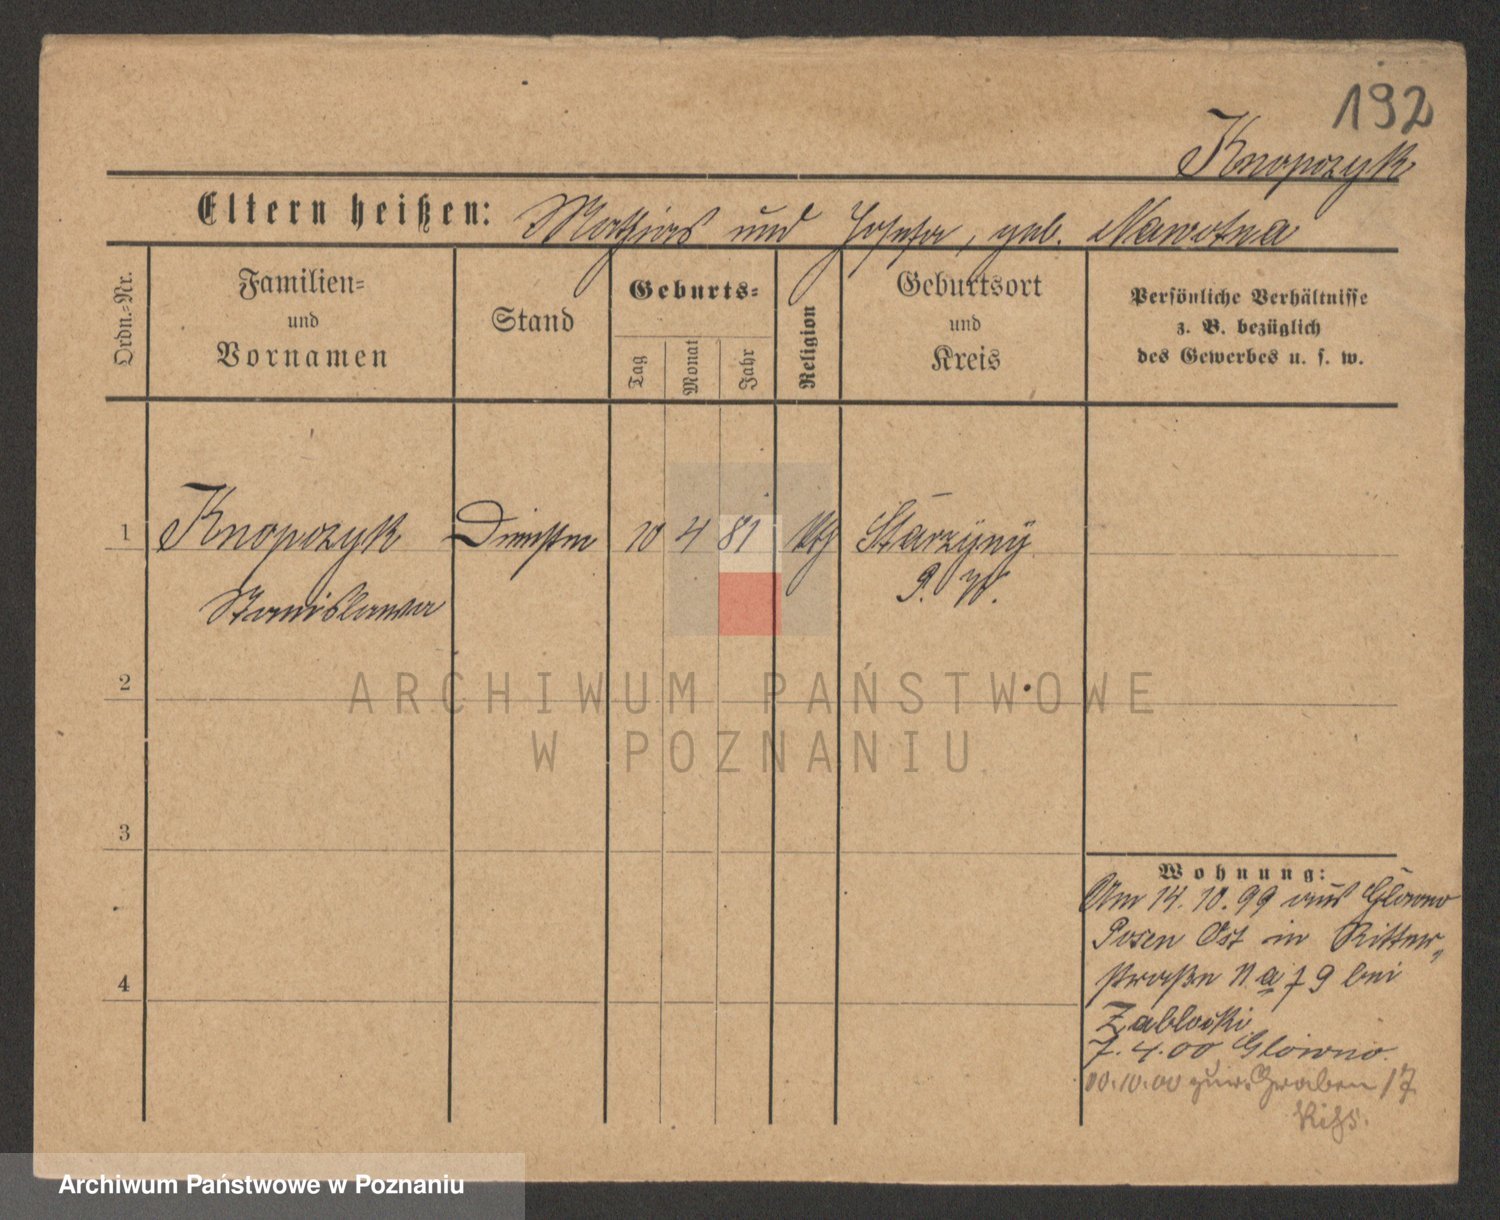 192
Knopczyk
Eltern heißen: Mathias und Josefa, geb. Nawotna
Ordn.-Nr.
Familien-
und
Vornamen
Stand
Geburts-
Tag
Monat
Jahr
Religion
Geburtsort
und
Kreis
Persönliche Verhältnisse
z. B. bezüglich
des Gewerbes u. s. w.
1 Knopczyk 10 4 81 kth
Stanislawa P. W.
2
ARCHIWUM PAŃSTWOWE
W POZNANIU
3
4
Wohnung:
Am 14.10.99 aus Glowno
Posen Ost in Ritter-
straße 11a bei
Zablocki
7.4.00 Glowno.
10.10.00 Graben 17
Archiwum Państwowe w Poznaniu